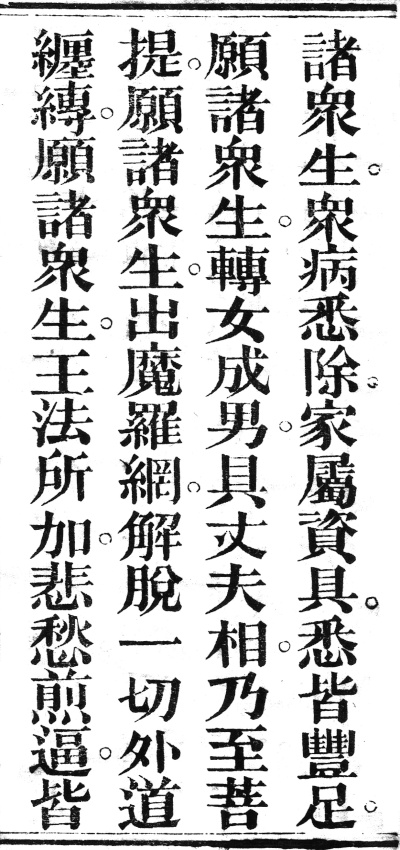 諸衆生。衆病悉除。家屬資具。悉皆豐足。
願諸衆生。轉女成男。具丈夫相。乃至菩
提。願諸衆生。出魔羅網。解脫一切外道
纏縛。願諸衆生。王法所加。悲愁煎逼。皆